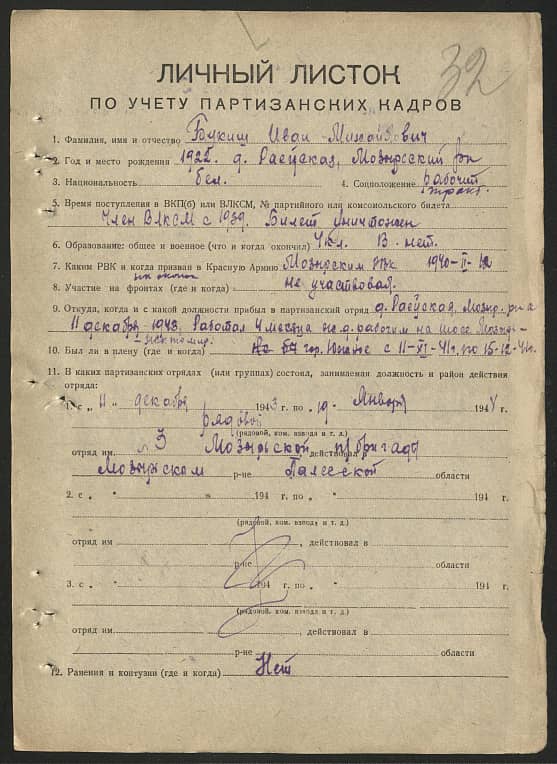 32
ЛИЧНЫЙ ЛИСТОК
ПО УЧЕТУ ПАРТИЗАНСКИХ КАДРОВ
1. Фамилия, имя и отчество Букиш Иван Михайлович
2. Год и место рождения 1922 д. Раеўская, Мозырсский р-н
3. Национальность бел. 4. Соцположение рабочий
5. Время поступления в ВКП(б) или ВЛКСМ, № партийного или комсомольского билета
Член ВЛКСМ с 1939. Билет уничтожен
6. Образование: общее и военное (что и когда окончил) 4 кл. В. нет.
7. Каким РВК и когда призван в Красную Армию Мозырским РВК 1940-II-
8. Участие на фронтах (где и когда) не участвовал.
9. Откуда, когда и с какой должности прибыл в партизанский отряд д. Раеўская, Мозыр. р-на
11 декабря 1943. Работал 4 месяца на д. рабочим на шосе Мозырь-
10. Был ли в плену (где и когда) гор. с 11-XI-41г. по 15-12-41г.
11. В каких партизанских отрядах (или группах) состоял, занимаемая должность и район действия
отряда:
1. с „ 11 „ декабря 1943 г. по „ 19 „ Января 1944 г.
рядовой
(рядовой, ком. взвода и т. д.)
отряд им 3 Мозырьской п/бригады действовал в
Мозырском р-не Палесской области
2. с „ „ 194 г. по „ „ 194 г.
(рядовой, ком. взвода и т. д.)
отряд им , действовал в
р-не области
3. с „ „ 194 г. по „ „ 194 г.
(рядовой, ком. взвода и т. д.)
отряд им , действовал в
р-не области
12. Ранения и контузии (где и когда) Нет